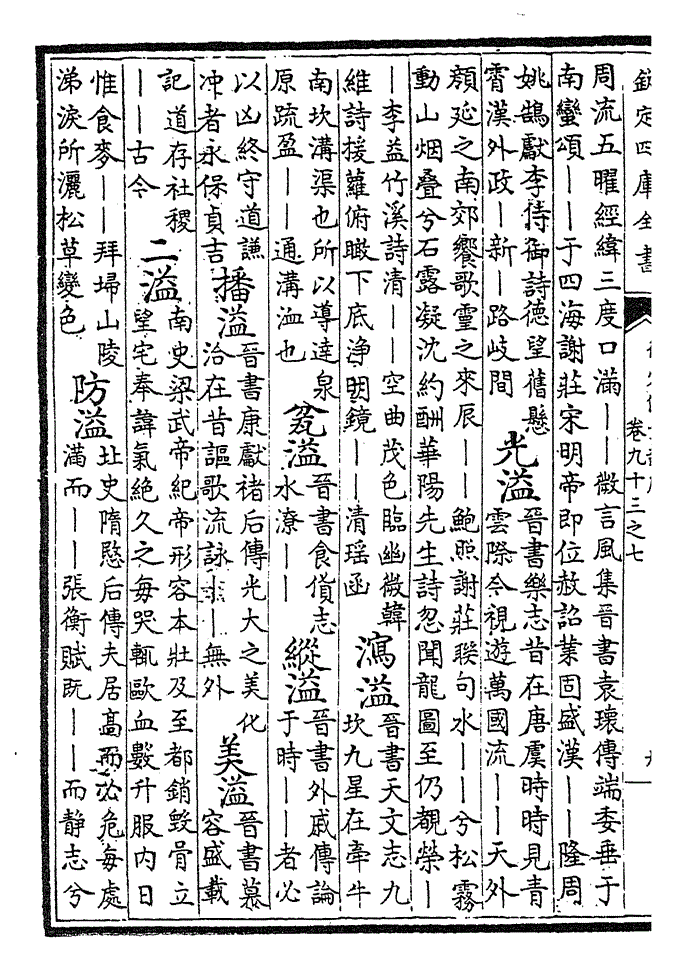 欽定四庫全書
卷九十三之七
周流五曜經緯三度口滿――微言風集晉書袁瓌傳端委垂于
南蠻頌――于四海謝莊宋明帝即位赦詔業固盛漢――隆周
姚鵠獻李侍御詩德望舊懸
霄漢外政―新―路歧間
光溢
晉書樂志昔在唐虞時時見青
雲際今視遊萬國流――天外
顔延之南郊饗歌靈之來辰――鮑照謝莊聯句水――兮松霧
動山烟叠兮石露凝沈約酬華陽先生詩忽聞龍圖至仍覩榮―
―李益竹溪詩清――空曲茂色臨幽微韓
維詩援蘿俯瞰下底淨明鏡――清瑶函
瀉溢
晉書天文志九
坎九星在牽牛
南坎溝渠也所以導達泉
原疏盈――通溝洫也
瓮溢
晉書食貨志
水潦――
縱溢
晉書外戚傳論
于時――者必
以凶終守道謙
冲者永保貞吉
播溢
晉書康獻褚后傳光大之美化
洽在昔謳歌流詠―無外
美溢
晉書慕
容盛載
記道存社稷
――古今
二溢
南史梁武帝紀帝形容本壯及至都銷毁骨立
望宅奉諱氣絶久之每哭輒歐血數升服内日
惟食麥――拜埽山陵
涕淚所灑松草變色
防溢
北史隋愍后傳夫居高而必危每處
滿而――張衡賦既――而静志兮